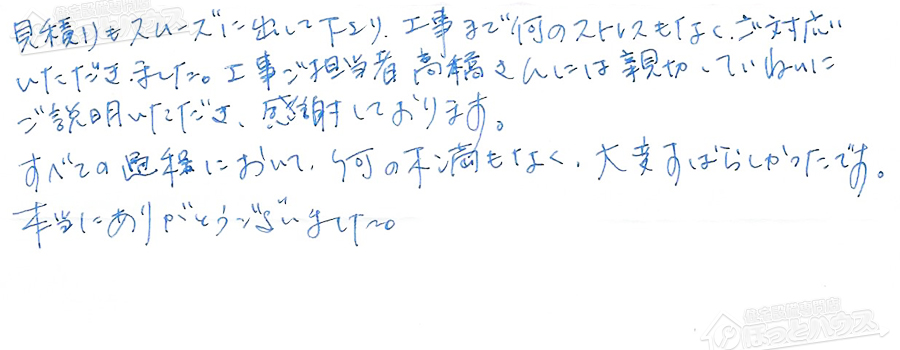 見積りもスムーズに出して下さり、工事まで何のストレスもなく、ご対応
いただきました。工事ご担当者 高橋さんには親切、ていねいに
ご説明いただき、感謝しております。
すべての過程において、何の不満もなく、大変すばらしかったです。
本当にありがとうございました。
住宅設備専門店
ほっとハウス